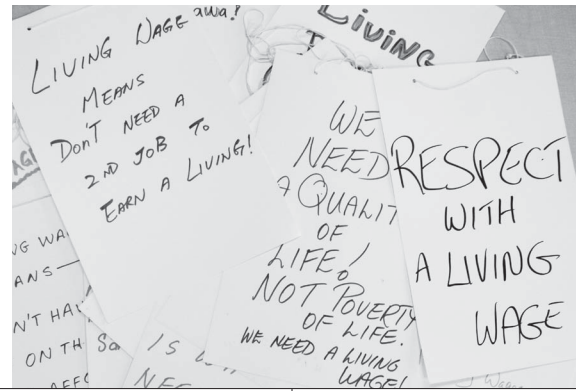 LIVING WAGE
MEANS
DON'T NEED A
2ND JOB TO
EARN A LIVING!
LIVING
WE
NEED
A QUALIT
OF
LIFE!
NOT POVERTY
OF LIFE.
WE NEED A LIVING
WAGE!
RESPECT
WITH
A LIVING
WAGE
NG WA
ANS—
N'T HAV
ON TH
So
IS
NEE